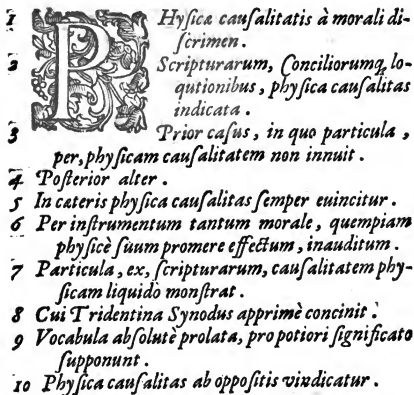 1 PHyſicæ cauſalitatis à morali di-
ſcrimen.
2 Scripturarum, Conciliorumq; lo-
qutionibus, phyſica cauſalitas
indicata.
3 Prior caſus, in quo particula,
per, phyſicam cauſalitatem non innuit.
4 Poſterior alter.
5 In cæteris phyſica cauſalitas ſemper euincitur.
6 Per inſtrumentum tantum morale, quempiam
phyſicè ſuum promere effectum, inauditum.
7 Particula, ex, ſcripturarum, cauſalitatem phy-
ſicam liquidò monſtrat.
8 Cui Tridentina Synodus apprimè concinit.
9 Vocabula abſolutè prolata, pro potiori ſignificato
ſupponunt.
10 Phyſica cauſalitas ab oppoſitis vindicatur.